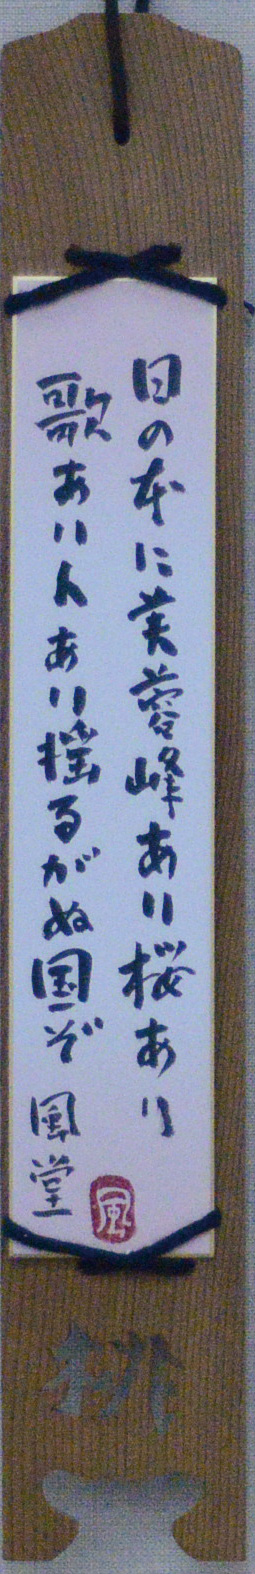 日の本に芙蓉峰あり桜あり
歌あり人あり揺るがぬ国ぞ 風堂
風